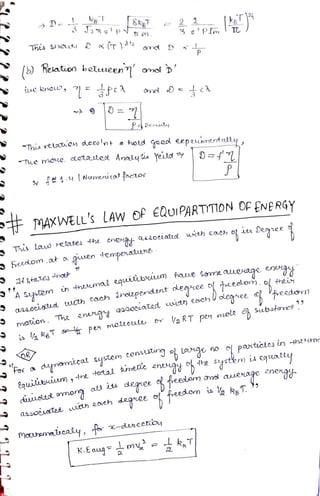 → D = 1/3 kBT / √2 π σ² P √(8kBT / π m) = 2/3 1/(σ² P√m) (kBT/π)^3/2
This shows D ∝ (T)^3/2 and D ∝ 1/P
(b) Relation between 'η' and 'D'
we know, η = 1/3 ρ c̄ λ and D = 1/3 c̄ λ
→ D = η/ρ
ρ → Density
- This relation doesn't hold good experimentally,
- The more detailed Analysis yeild → D = f η/ρ
f = 1.4 (Numerical factor
# MAXWELL's LAW OF EQUIPARTITION OF ENERGY
This law relates the energy associated with each of its Degree of
freedom at a given temperature.
It states that
"A system in thermal equilibrium have some average energy
associated with each independent degree of freedom of their
motion. The energy associated with each degree of freedom
is ½ kBT per molecule or ½ RT per mole of substance".
OR
"For a dynamical system consisting of large no of particles in thermal
Equilibrium, the total kinetic energy of the system is equally
divided among all its degree of freedom and average energy
associated with each degree of freedom is ½ kBT."
Mathematicaly, for x-direction
K.Eavg = 1/2 mvx² = 1/2 kBT